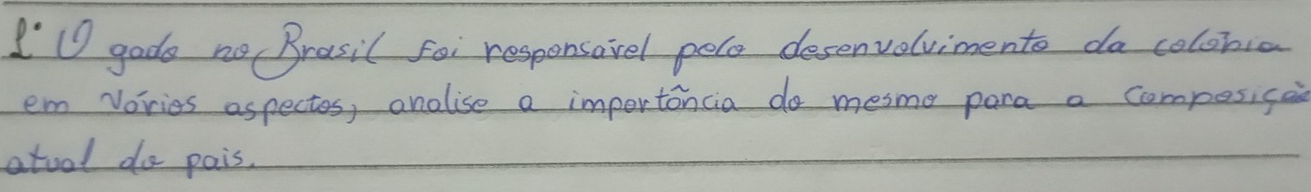 1º O gado no Brasil foi responsável pelo desenvolvimento da colônia
em vários aspectos, analise a importância do mesmo para a composição
atual do pais.